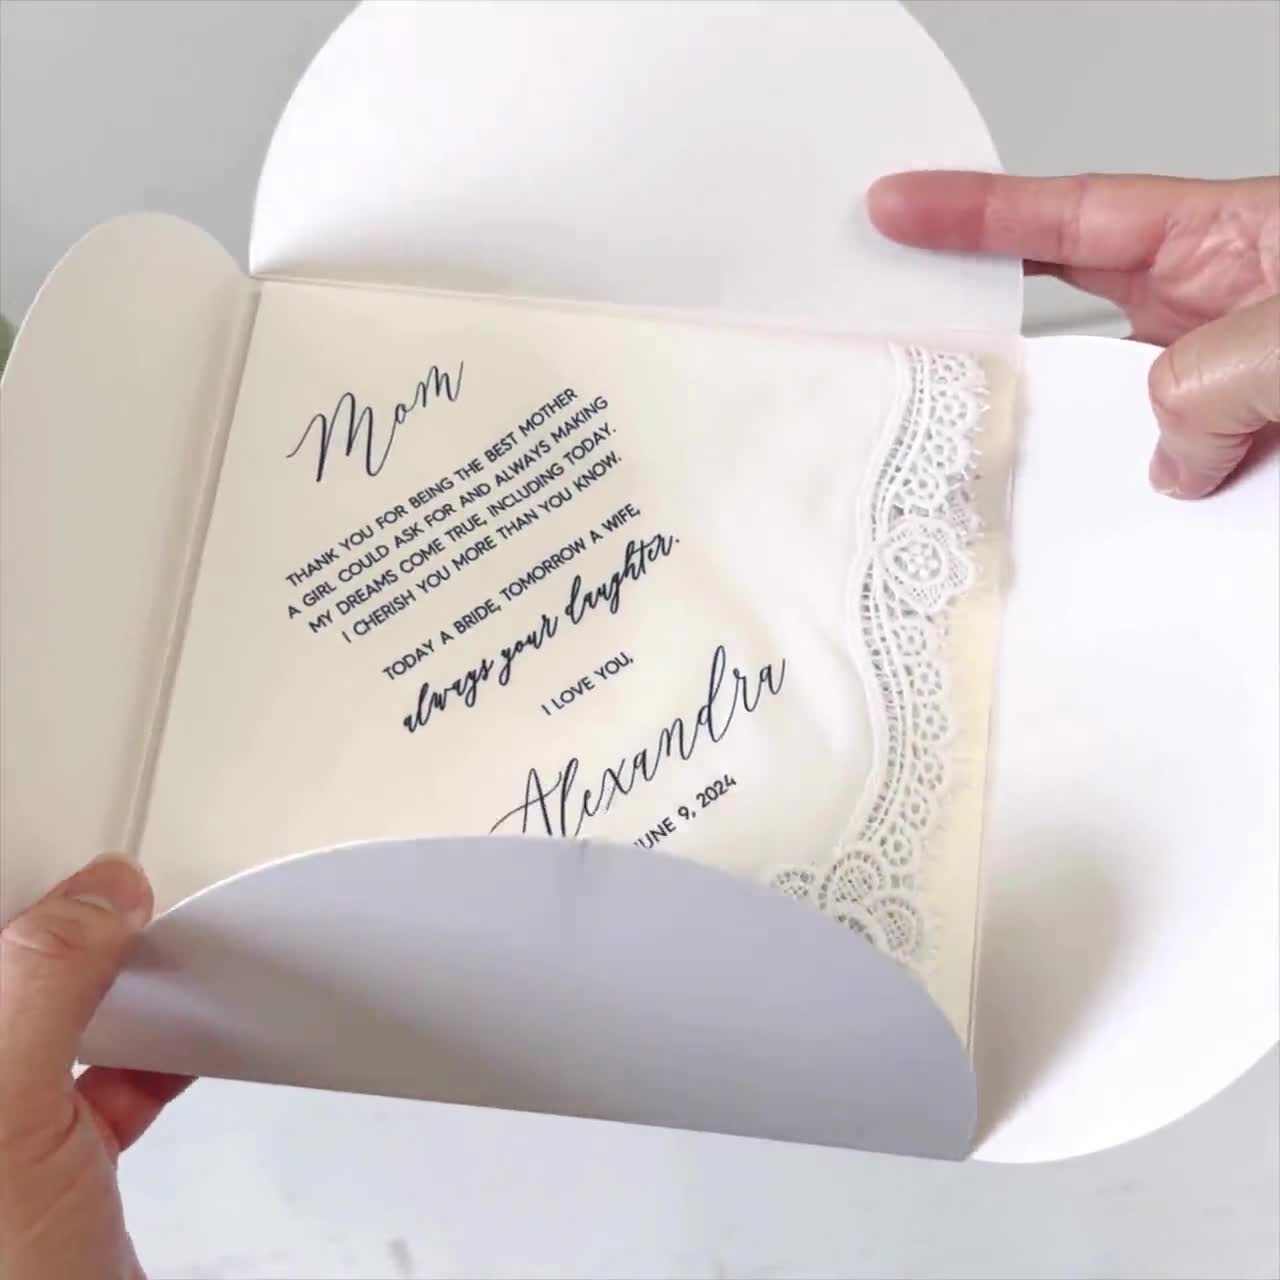 Mom
THANK YOU FOR BEING THE BEST MOTHER
A GIRL COULD ASK FOR AND ALWAYS MAKING
MY DREAMS COME TRUE, INCLUDING TODAY.
I CHERISH YOU MORE THAN YOU KNOW.
TODAY A BRIDE, TOMORROW A WIFE,
always your daughter.
I LOVE YOU,
Alexandra
JUNE 9, 2024